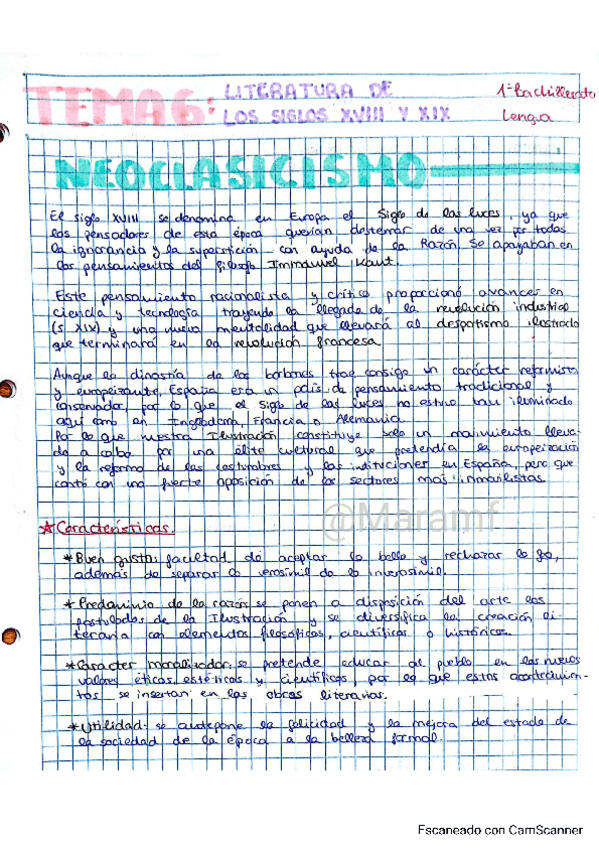 TEMA 6: LITERATURA DE
LOS SIGLOS XVIII Y XIX
1º Bachillerato
Lengua
NEOCLASICISMO
El siglo XVIII se denomina en Europa el Siglo de las luces, ya que
los pensadores de esta época querían desterrar de una vez por todas
la ignorancia y la superstición con ayuda de la Razón. Se apoyaban en
los pensamientos del filósofo Immanuel Kant.
Este pensamiento racionalista y crítico proporcionó avances en
ciencia y tecnología trayendo la llegada de la revolución industrial
(s XIX) y una nueva mentalidad que llevará al despotismo ilustrado
que terminará en la revolución francesa
Aunque la dinastía de los borbones trae consigo un carácter reformista
y europeizante, España era un país de pensamiento tradicional y
conservador, por lo que el Siglo de las Luces no estuvo tan iluminado
aquí como en Inglaterra, Francia o Alemania.
Por lo que nuestra Ilustración constituye solo un movimiento lleva-
do a cabo por una élite cultural que pretendía la europeización
y la reforma de las costumbres y las instituciones en España, pero que
contó con una fuerte oposición de los sectores más inmovilistas.
@Maramf
*Características.
*Buen gusto: facultad de aceptar lo bello y rechazar lo feo,
además de separar lo verosímil de lo inverosímil.
*Predominio de la razón: se ponen a disposición del arte los
postulados de la Ilustración y se diversifica la creación li-
teraria con elementos filosóficos, científicos o históricos.
*Carácter moralizador: se pretende educar al pueblo en los nuevos
valores éticos, estéticos y científicos, por lo que estos
se insertan en las obras literarias.
*Utilidad: se antepone la felicidad y la mejora del estado de
la sociedad de la época a la belleza formal.
Escaneado con CamScanner